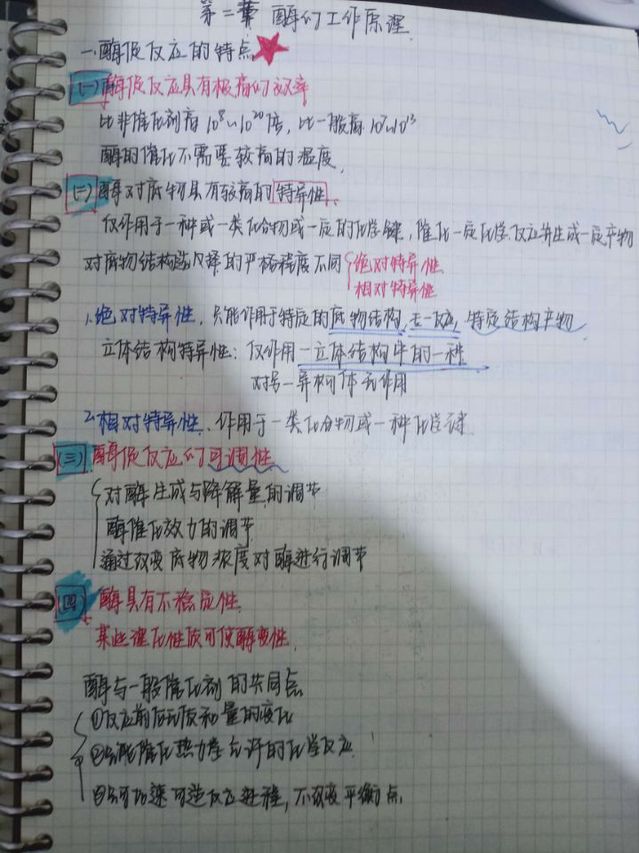 第二章 酶的工作原理
一.酶促反应的特点
(一)酶促反应具有极高的效率
比非催化剂高10⁸~10²⁰倍,比一般高10⁷~10¹³
酶的催化不需要较高的温度.
(二)酶对底物具有较高的特异性.
仅作用于一种或一类化合物或一定的化学键,催化一定化学反应并生成一定产物
对底物结构选择的严格程度不同 绝对特异性
相对特异性
1.绝对特异性.只能作用于特定的底物结构, 特定结构产物
立体结构特异性:仅作用一立体结构中的一种
对另一异构体无作用
2.相对特异性、作用于一类化合物或一种化学键
(三)酶促反应的可调性
对酶生成与降解量的调节
酶催化效力的调节
通过改变底物浓度对酶进行调节
(四) 酶具有不稳定性.
某些理化性质可使酶变性.
酶与一般催化剂的共同点
①反应前后无质和量的变化
②只能催化热力学允许的化学反应.
③只可加速可逆反应进程,不改变平衡点.